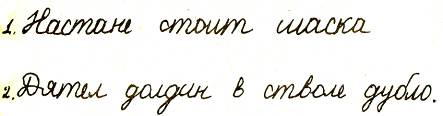 1. Настане стоит шаска
2. Дятел долдин в стволе дубло.